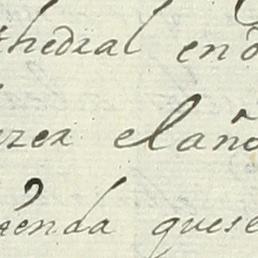 thedral en
el año
enda quese